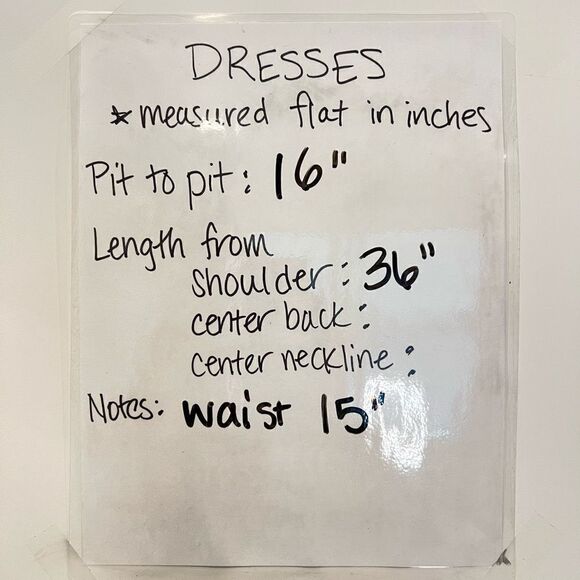 DRESSES
* measured flat in inches
Pit to pit: 16"
Length from
shoulder: 36"
center back:
center neckline:
Notes: waist 15"